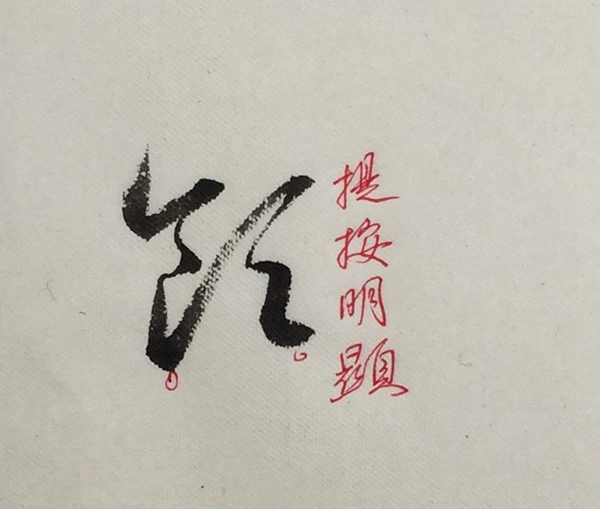 提按明顯